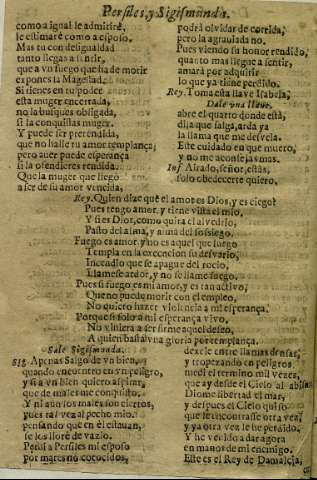 Persiles, y Sigismunda.
como a igual le admitiré,
le estimaré como a esposo,
Mas tu con desigualdad
tanto llegas a sentir,
que a vn fuego que ha de morir
expones la Magestad.
Si tienes en tu poder
esta muger encerrada,
no la busques obligada,
si la conquistas muger.
Y puede ser pretendida,
que no halle tu amor templança,
pero auer puede esperança
si la ofendieres rendida.
Que la muger que llegò
a ser de su amor vencida,
podrà olvidar de corrida,
pero la agrauiada no.
Pues viendo su honor rendido,
quanto mas llegue a sentir,
amarà por adquirir
lo que ya tiene perdido.
Rey. Toma esta llave Isabela,
Dale vna llave.
abre el quarto donde està,
dila, que salga, arda ya
la llama que me desvela.
Este cuidado en que muero,
y no me aconsejas mas.
Inf. Airado, señor, estàs,
solo obedecerte quiero.
Rey. Quien dize què el amor es Dios, y es ciego?
Pues tengo amor, y tiene vista el mio,
Y si es Dios, como quita el alvedrio,
Pasto del alma, y anima del sossiego.
Fuego es amor, y no es aquel que luego
Templa en la execucion su desvario,
Incendio que se apague del rocio,
Llamese ardor, y no se llame fuego.
Pues si fuego es mi amor, y es tan activo,
Que no puede morir con el empleo,
No quiero hazer violencia a mi esperança.
Porque si solo a mi esperança vivo,
No viniera a ser firme aquel deseo,
A quien basta vna gloria por templança.
Sale Sigismunda.
Sig. Apenas Salgo de vn bien,
quando encuentro en vn peligro,
y si a vn bien quiero aspirar,
que de males me conquisto.
Y ni aun los males son ciertos,
pues tal vez al pecho mio,
pensando que en èl estauan,
se los lloré de vazio.
Perdi a Persiles mi esposo
por mares no conocidos,
dexele entre llamas densas,
y tropezando en peligros,
medi el termino mil vezes,
que ay desde el Cielo al abismo
Diome libertad el mar,
y despues el Cielo quiso
que le encontrasse otra vez,
y ya otra vez le he perdido.
Y he venido a dar agora
en manos de mi enemigo.
Este es el Rey de Damalcia,